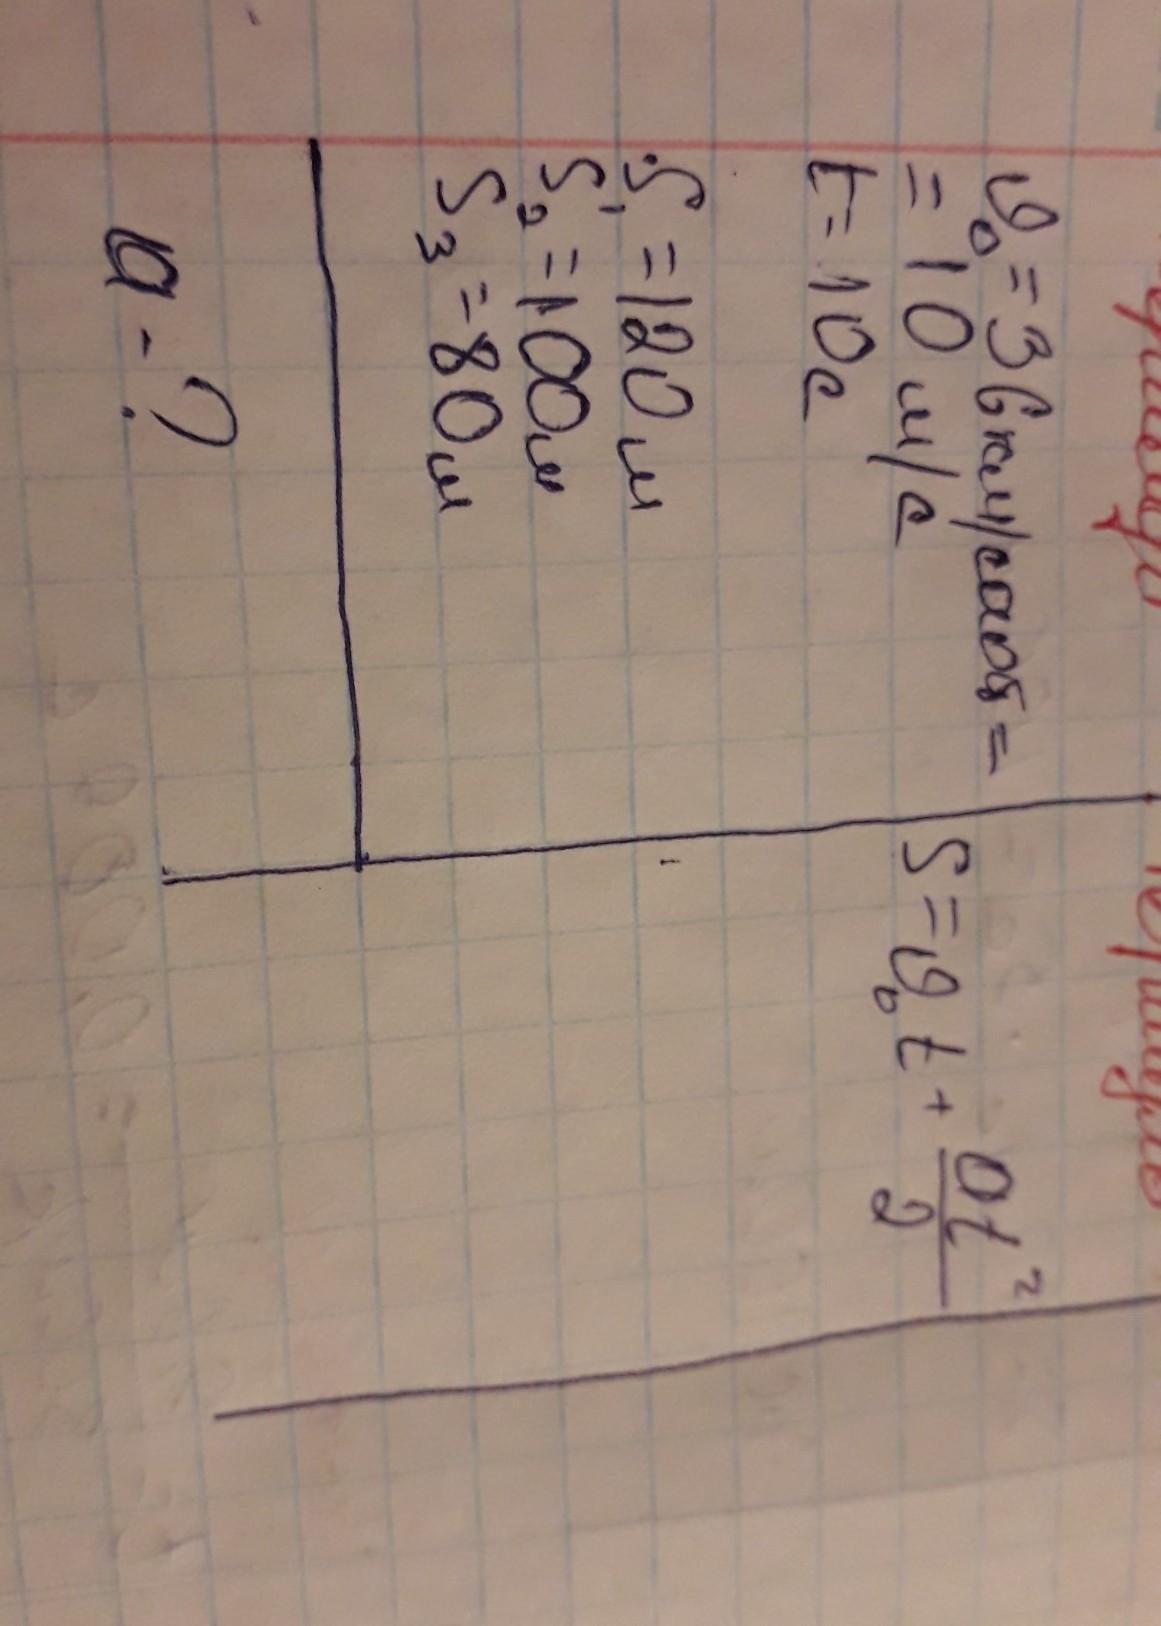 υ₀ = 36 км/сааб =
= 10 м/с
t = 10с
S₁ = 120 м
S₂ = 100м
S₃ = 80м
a - ?
S = υ₀t + at²/2